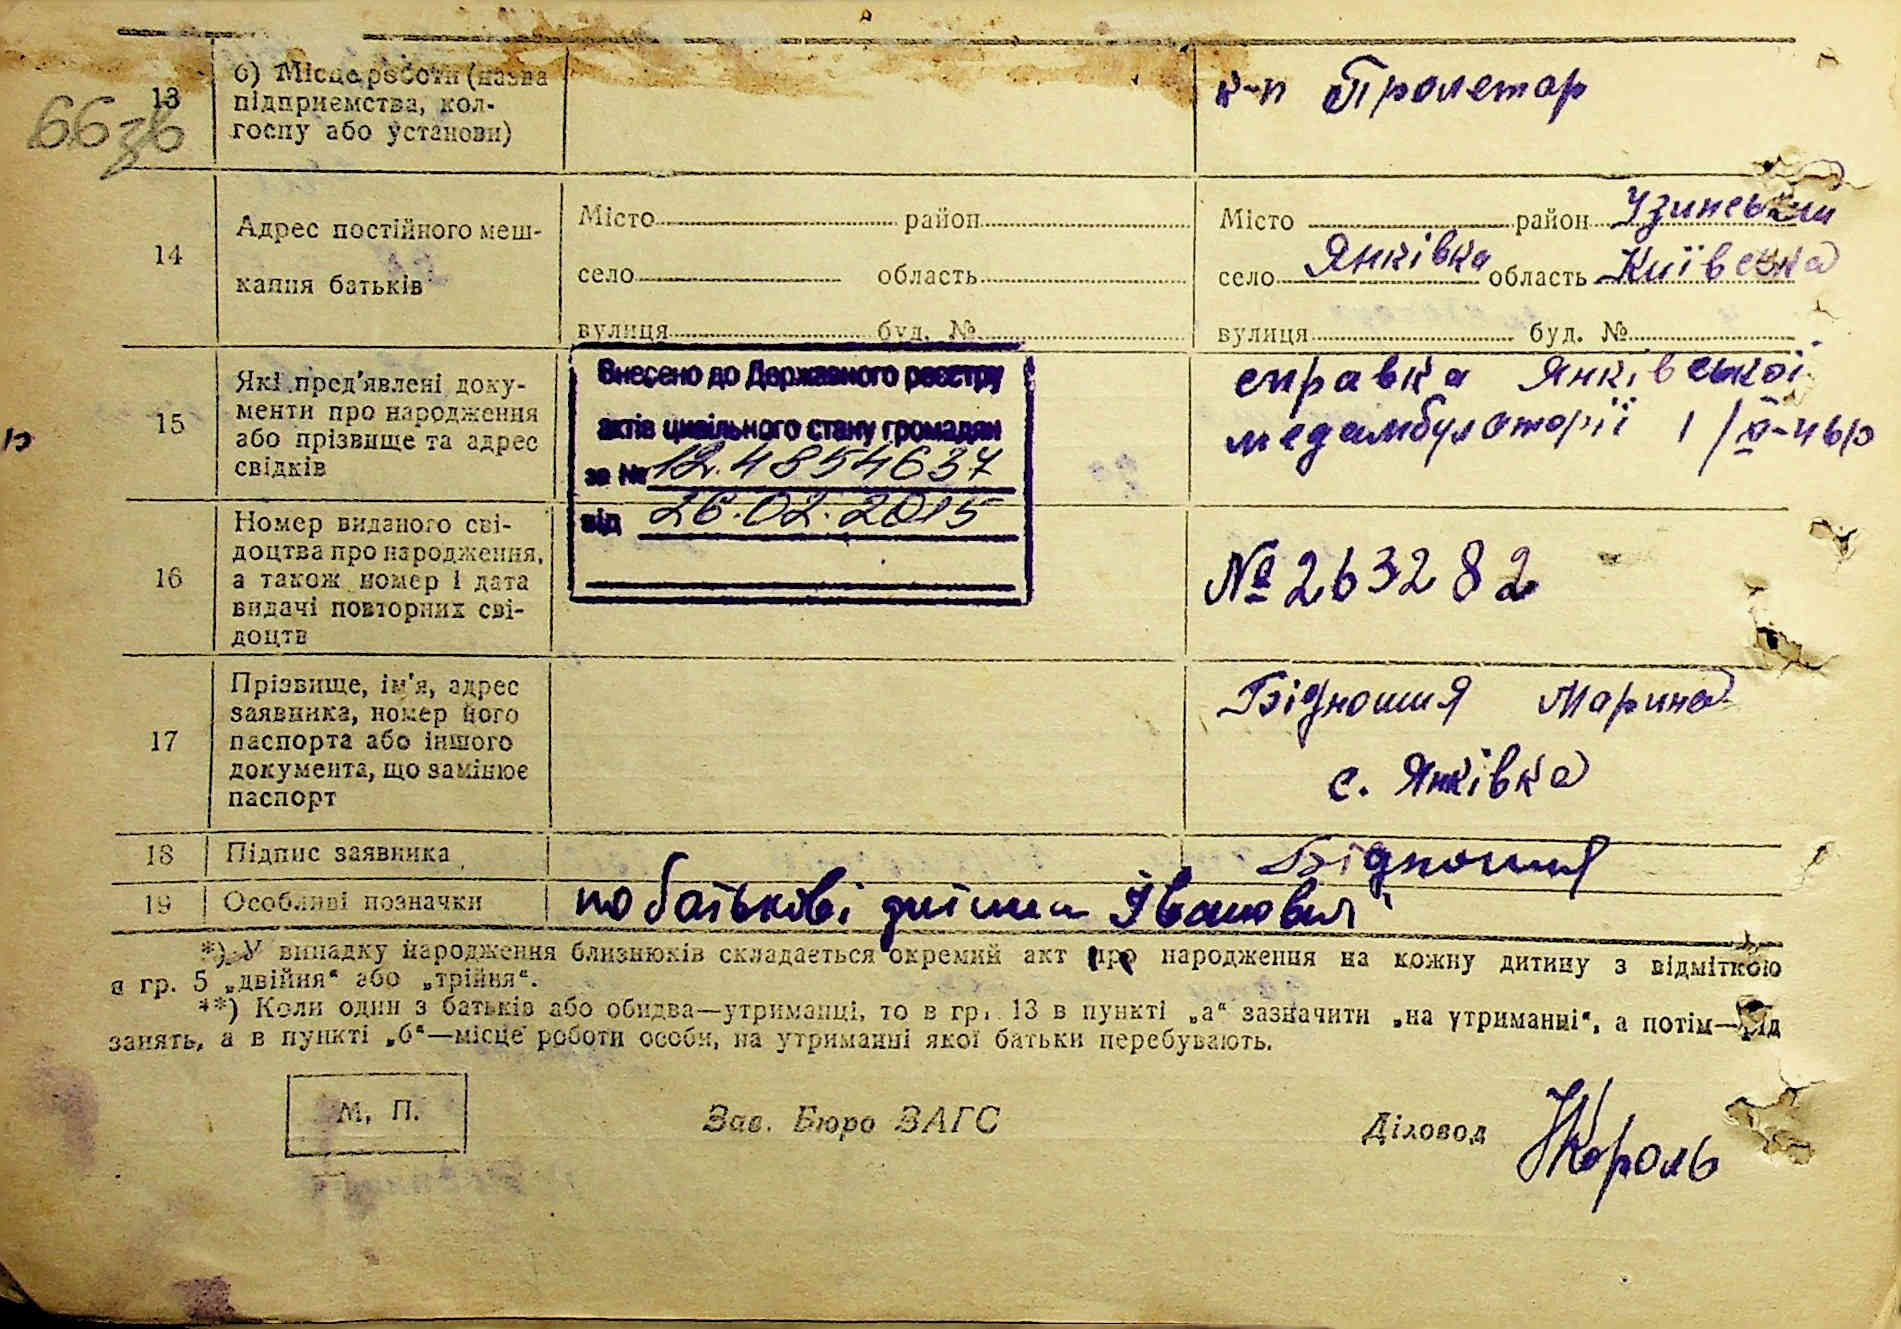 66зв
13
б) Місце роботи (назва
підприємства, кол-
госпу або установи)
к-п Пролетар
14
Адрес постійного меш-
кання батьків
Місто район
село область
вулиця буд. №
Місто район Узинський
село Янківка область Київська
вулиця буд. №
15
Які пред'явлені доку-
менти про народження
або прізвище та адрес
свідків
Внесено до Державного реєстру
актів цивільного стану громадян
за № 12.4854637
від 26.02.2015
справка Янківської
медамбулаторії 1/V-41р
16
Номер виданого сві-
доцтва про народження,
а також номер і дата
видачі повторних сві-
доцтв
№ 263282
17
Прізвище, ім'я, адрес
заявника, номер його
паспорта або іншого
документа, що замінює
паспорт
Бідношия Марина
с. Янківка
18
Підпис заявника
Бідношия
19
Особливі позначки
по батькові дитина Івановия
*) У випадку народження близнюків складається окремий акт про народження на кожну дитину з відміткою
в гр. 5 „двійня“ або „трійня“.
**) Коли один з батьків або обидва—утриманці, то в гр. 13 в пункті „а“ зазначити „на утриманні“, а потім—рід
занять, а в пункті „б“—місце роботи особи, на утриманні якої батьки перебувають.
М. П.
Зав. Бюро ЗАГС
Діловод Король